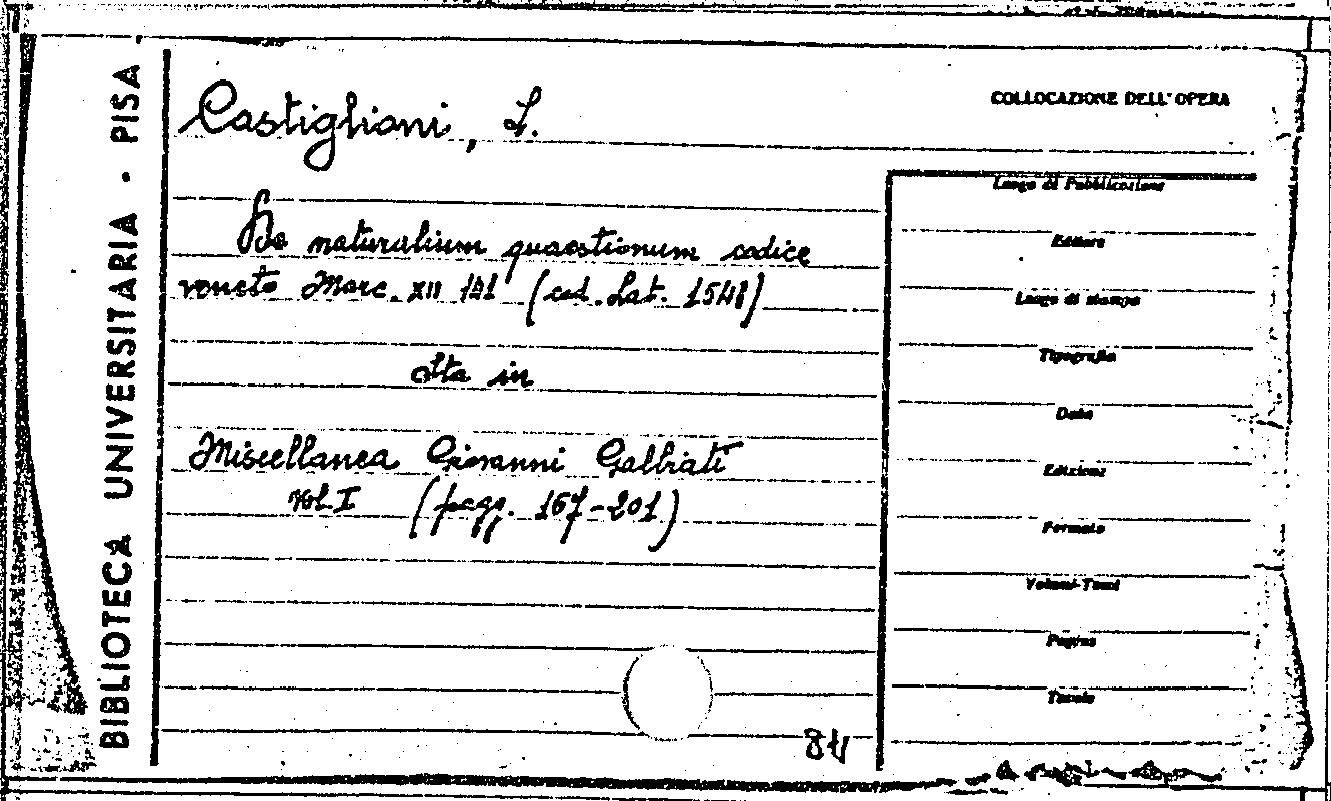 BIBLIOTECA UNIVERSITARIA · PISA
COLLOCAZIONE DELL'OPERA
Castiglioni, L.
De naturalium quaestionum codice
veneto Marc. XII 141 (cod. Lat. 1548)
Sta in
Miscellanea Giovanni Galbiati
Vol. I (pagg. 167-201)
84
Luogo di Pubblicazione
Editore
Luogo di stampa
Tipografia
Data
Edizione
Formato
Volumi-Tomi
Pagine
Tavole